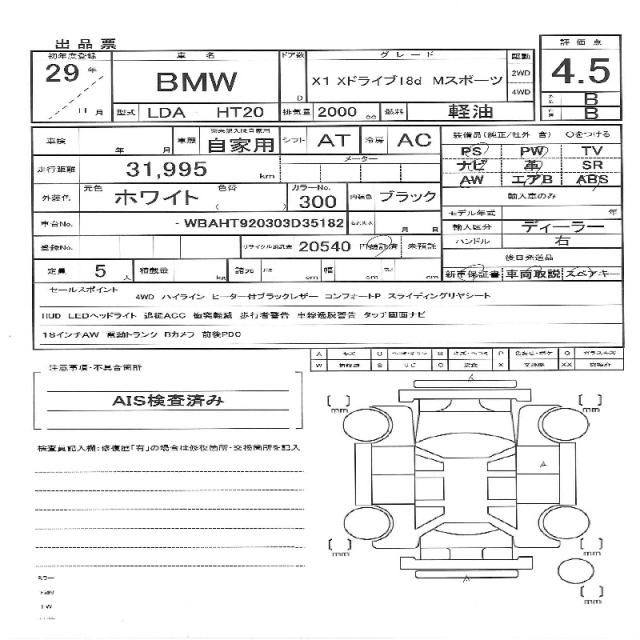 出品票
初年度登録 車名 ドア数 グレード 駆動 評価点
29年 BMW D X1 Xドライブ18d Mスポーツ 2WD 4WD 4.5
11月 型式 LDA HT20 排気量 2000 cc 燃料 軽油 B
B
車検 年 月 車歴 自家用 シフト AT 冷房 AC 装備品(純正/社外 含) ○をつける
走行距離 31,995 km メーター PS PW TV
ナビ 革 SR
AW エアB ABS
外装色 元色 ホワイト 色替 カラーNo. 300 内装色 ブラック 輸入車のみ
車台No. -WBAHT920303D35182 月 日 モデル年式 年
輸入区分 ディーラー
登録No. リサイクル預託金 20540 円 預託済 未預託 ハンドル 右
後日発送品
定員 5人 積載量 kg 諸元 長 cm 幅 cm 高 cm 新車保証書 車両取説 スペアキー
セールスポイント
4WD ハイライン ヒーター付ブラックレザー コンフォートP スライディングリヤシート
HUD LEDヘッドライト 追従ACC 衝突軽減 歩行者警告 車線逸脱警告 タッチ画面ナビ
18インチAW 電動トランク Bカメラ 前後PDC
注意事項・不具合箇所
AIS検査済み
検査員記入欄:修復歴「有」の場合は修復箇所・交換箇所を記入
A
mm mm
A
mm mm
A
mm